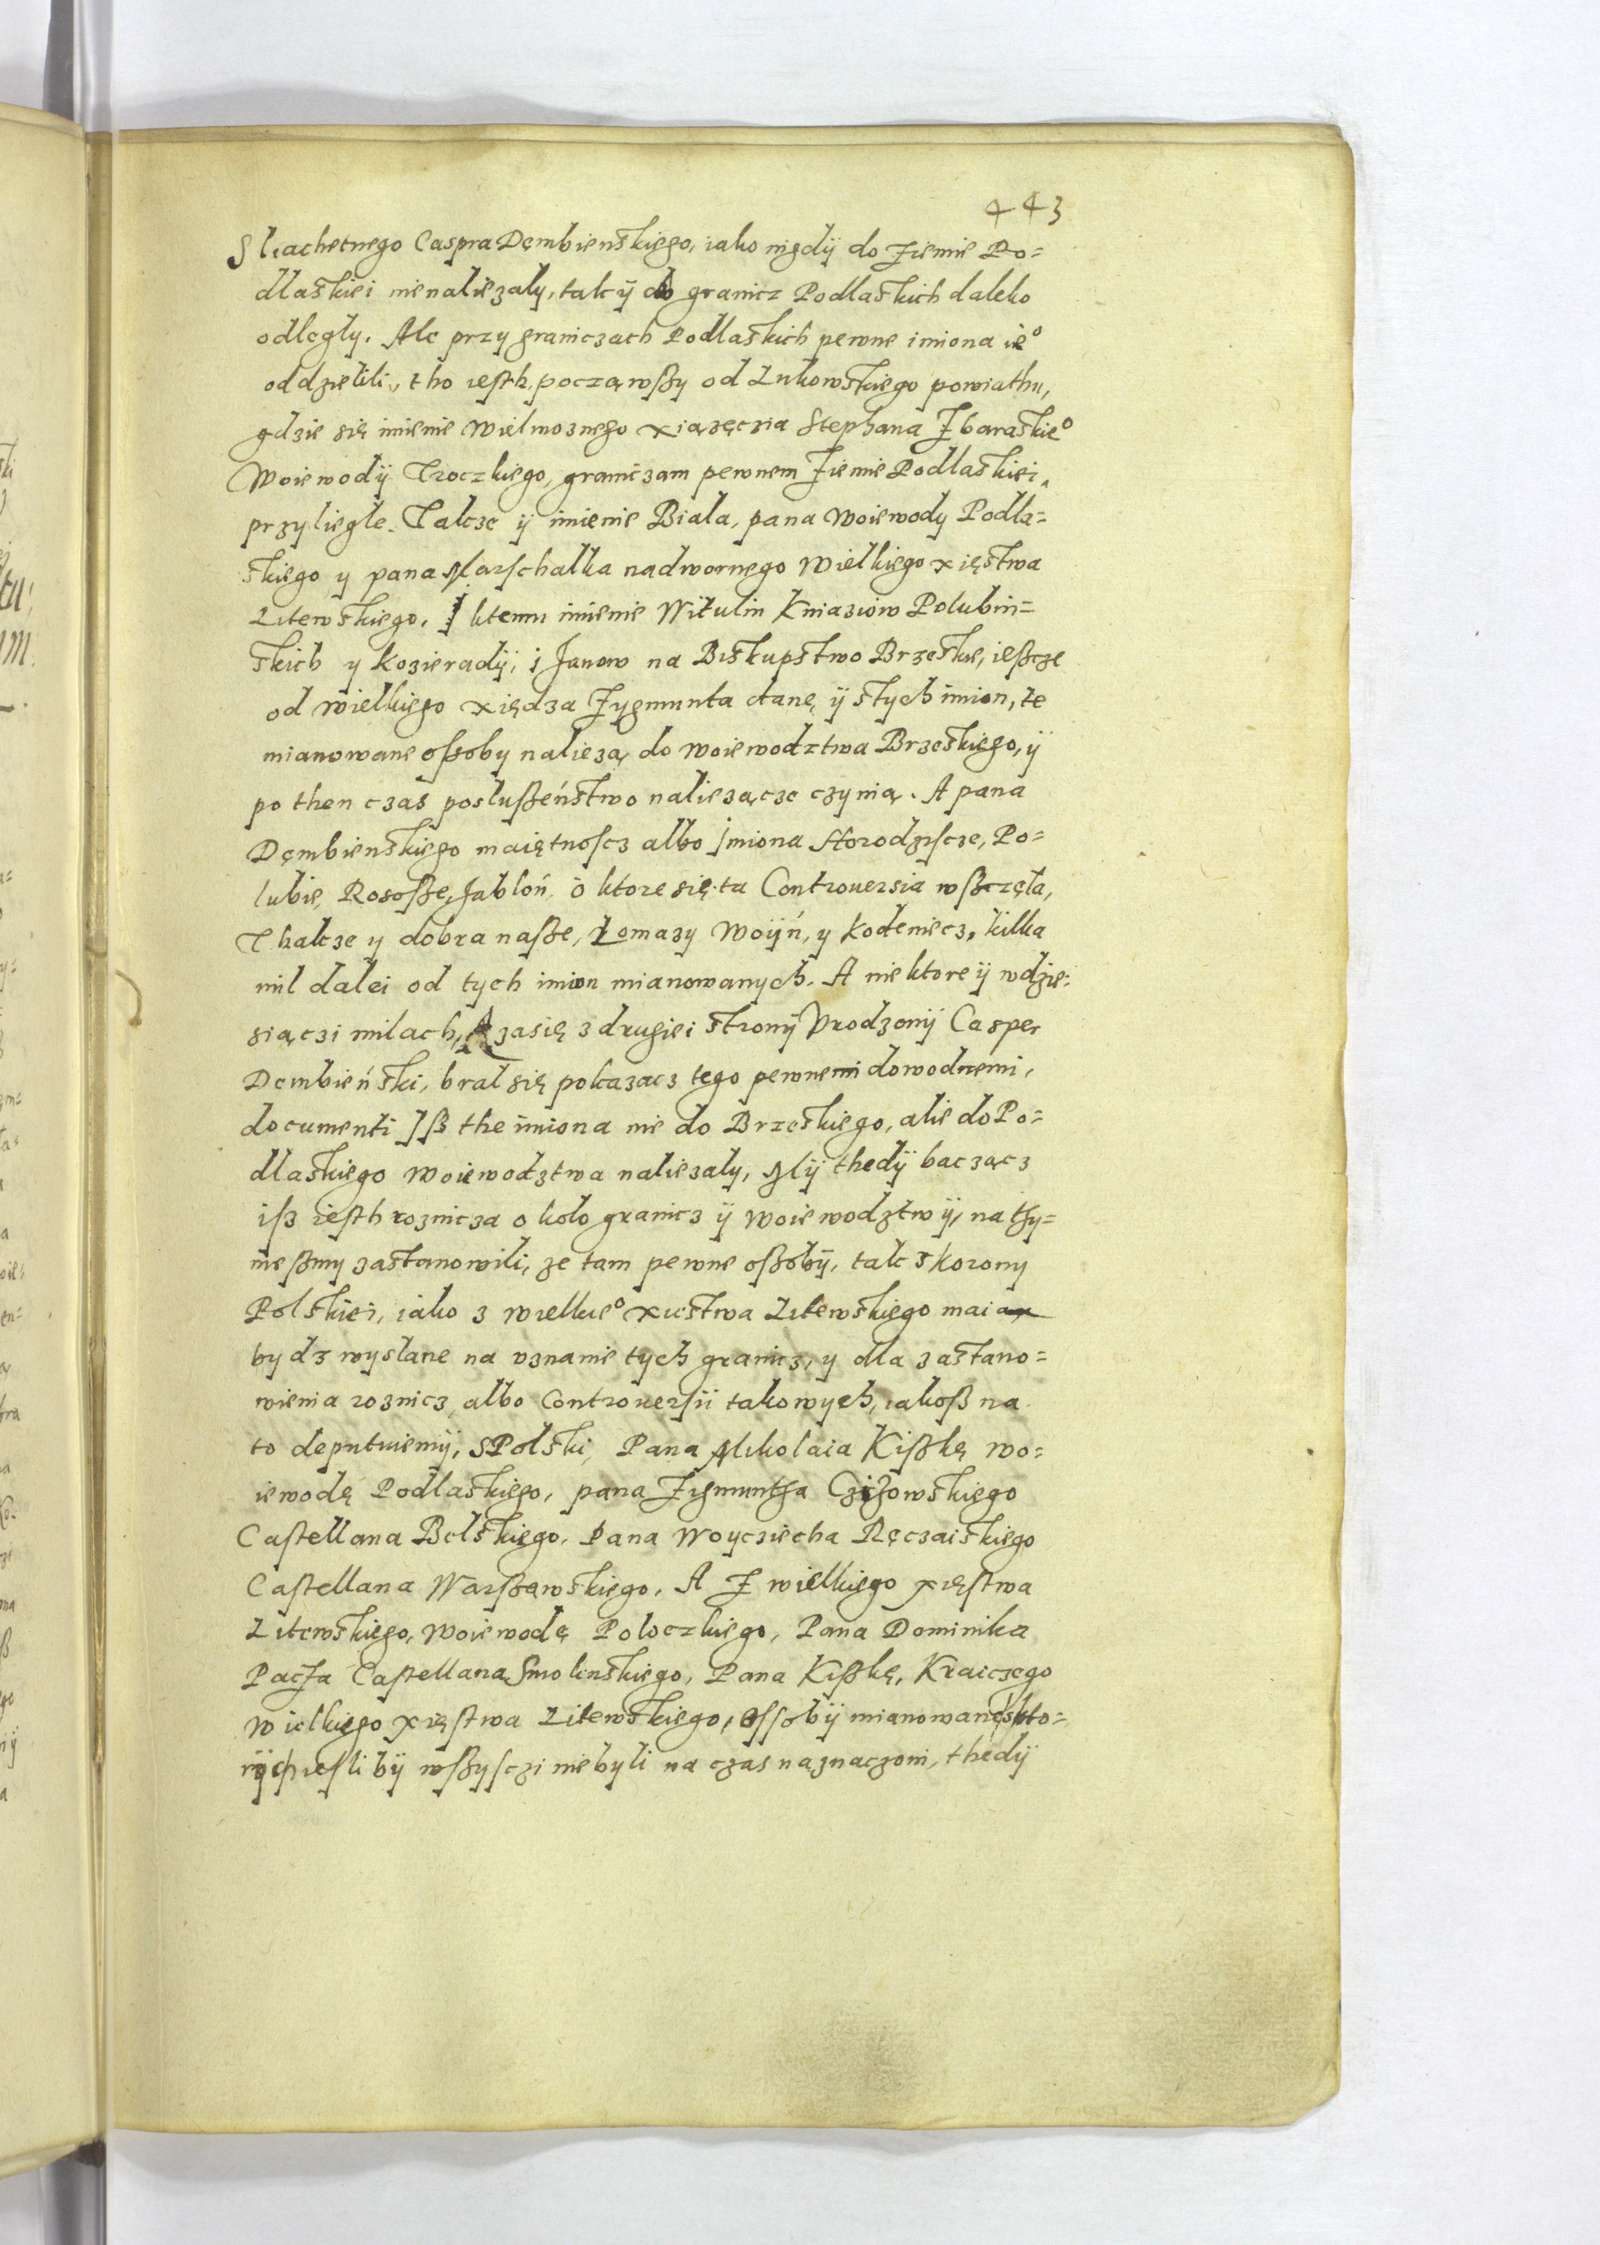 443
Sliachetnego Caspra Dęmbienskiego, iako nigdÿ do Ziemie Po=
dlaskiei nienaliezaly, tak ÿ do granicz Podlaskich daleko
odlegly. Ale przy graniczach Podlaskich pewne imiona ieº
oddzielili, tho iesth, począwßy od Lukowskiego powiathu,
gdzie się imienie Wielmoznego Xiązęczia Stephana Zbaraskieº
Woiewodÿ Troczkiego, graniczam pewnem Ziemie Podlaskiei,
przyliegle. Takze ÿ imienie Biala, pana Woiewody Podla=
skiego y pana Marschalka nadwornego Wielkiego xięstwa
Litewskiego. I ktemu imienie Witulin Kniaziow Polubin=
skich y Kozieradÿ, i Janow na Biskupstwo Brzeskie, ießcze
od wielkiego xiędza Zygmunta danę ÿ stych imion, te
mianowane ossoby naliezą do woiewodztwa Brzeskiego, ÿ
po then czas posłußeństwo naliezącze czynią. A pana
Dęmbienskiego maiętnoscz albo imiona Horodziscze, Po=
lubie, Rosoße, Jabloń, o ktore się ta Controuersia wßczęla,
Thakze y dobra naße, Łomazy Woÿń, y Kodeniecz, kilka
mil dalei od tych imion mianowanych. A niektore ÿ wdzie=
siączi milach, A zasię z drugiei stronÿ Vrodzonÿ Casper
Dembieński, bral się pokazacz tego pewnemi dowodnemi,
documenti Iß the imiona nie do Brzeskiego, alie do Po=
dlaskiego Woiewodztwa naliezaly, Mÿ thedÿ bacząc z
iß iesth roznicza o kolo granicz ÿ Woiewodztwÿ, na thy=
meßmy zastanowili, ze tam pewne oßobÿ, tak s korony
Polskiei, iako z wielkieº xiestwa Litewskiego maią
bydz wyslane na vznanie tych granicz, y dla zastano=
wienia roznicz albo Controuersii takowych, iakoß na
to deputuiemÿ, s Polski, Pana Mikolaia Kißkę wo=
iewodę Podlaskiego, pana Zigmuntha Cziżowskiego
Castellana Belskiego, Pana Woyciecha Ręczaiskiego
Castellana Warßewskiego, A Z wielkiego xięstwa
Litewskiego, Woiewodę Poloczkiego, Pana Dominika
Paca Castellana Smolenskiego, Pana Kißkę, Kraiczego
Wielkiego xięstwa Litewskiego, ossobÿ mianowane, kto=
rÿch iesli bÿ wßysczi niebyli na czas naznaczoni, thedÿ